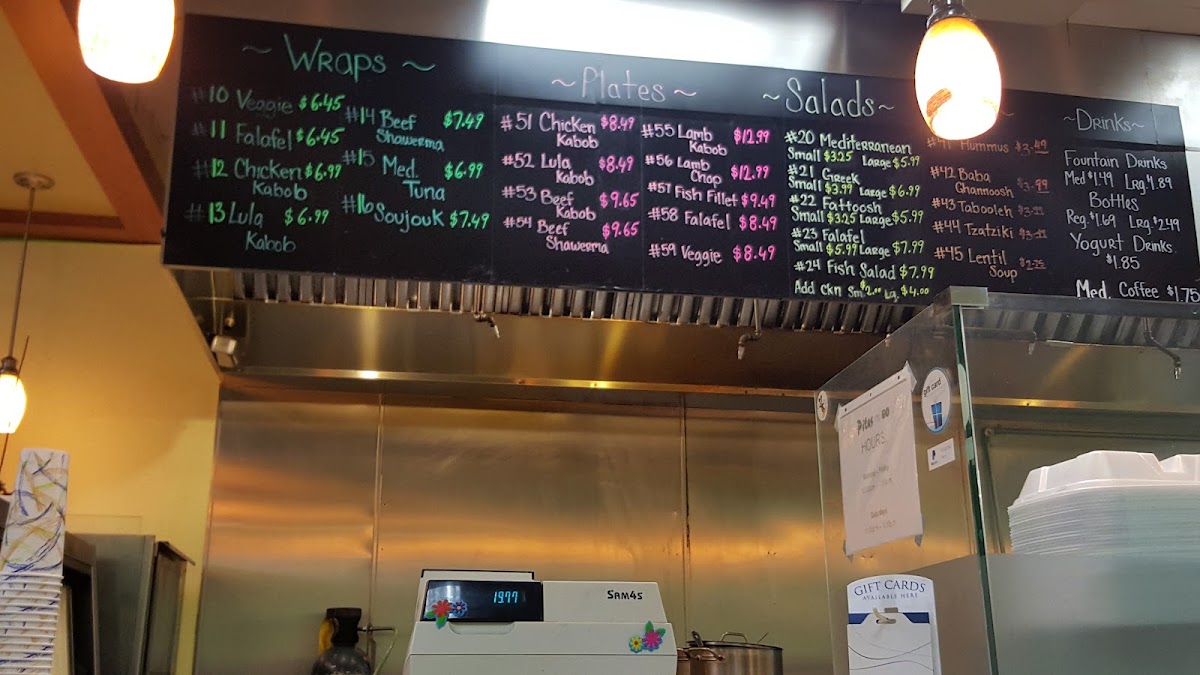 ~ Wraps ~
#10 Veggie $6.45
#11 Falafel $6.45
#12 Chicken $6.99
Kabob
#13 Lula $6.99
Kabob
#14 Beef $7.49
Shawerma
#15 Med. $6.99
Tuna
#16 Soujouk $7.49
~Plates~
#51 Chicken $8.49
Kabob
#52 Lula $8.49
Kabob
#53 Beef $9.65
Kabob
#54 Beef $9.65
Shawerma
#55 Lamb $12.99
Kabob
#56 Lamb $12.99
Chop
#57 Fish Fillet $9.49
#58 Falafel $8.49
#59 Veggie $8.49
~Salads~
#20 Mediterranean
Small $3.25 Large $5.99
#21 Greek
Small $3.99 Large $6.99
#22 Fattoosh
Small $3.25 Large $5.99
#23 Falafel
Small $5.99 Large $7.99
#24 Fish Salad $7.99
Add Ckn Sm $2.00 Lg. $4.00
#41 Hummus
#42 Baba
Ghamoosh
#43 Tabooleh
#44 Tzatziki
#45 Lentil
Soup
~Drinks~
Fountain Drinks
Med $1.49 Lrg. 1.89
Bottles
Reg. $1.69 Lrg $2.49
Yogurt Drinks
$1.85
Med. Coffee $1.75
gift card
HOURS
GIFT CARDS
AVAILABLE HERE
19.77
SAM4S